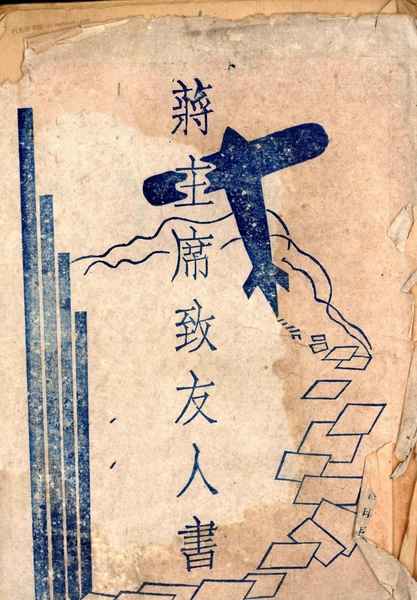 蔣主席致友人書